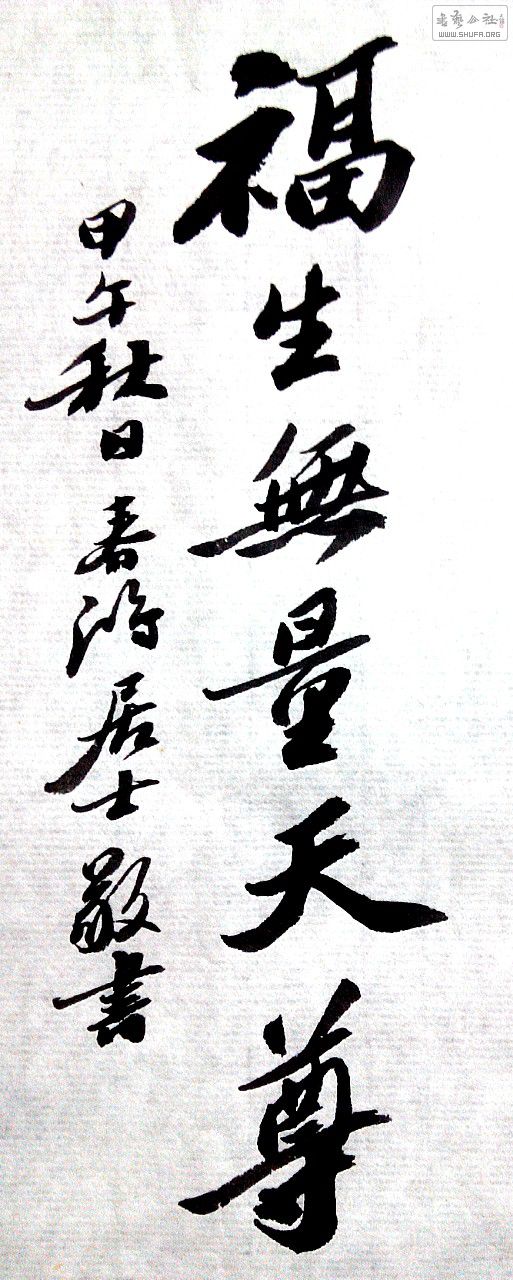 福生無量天尊
甲午秋日 春鸿居士 敬書
書藝公社
WWW.SHUFA.ORG